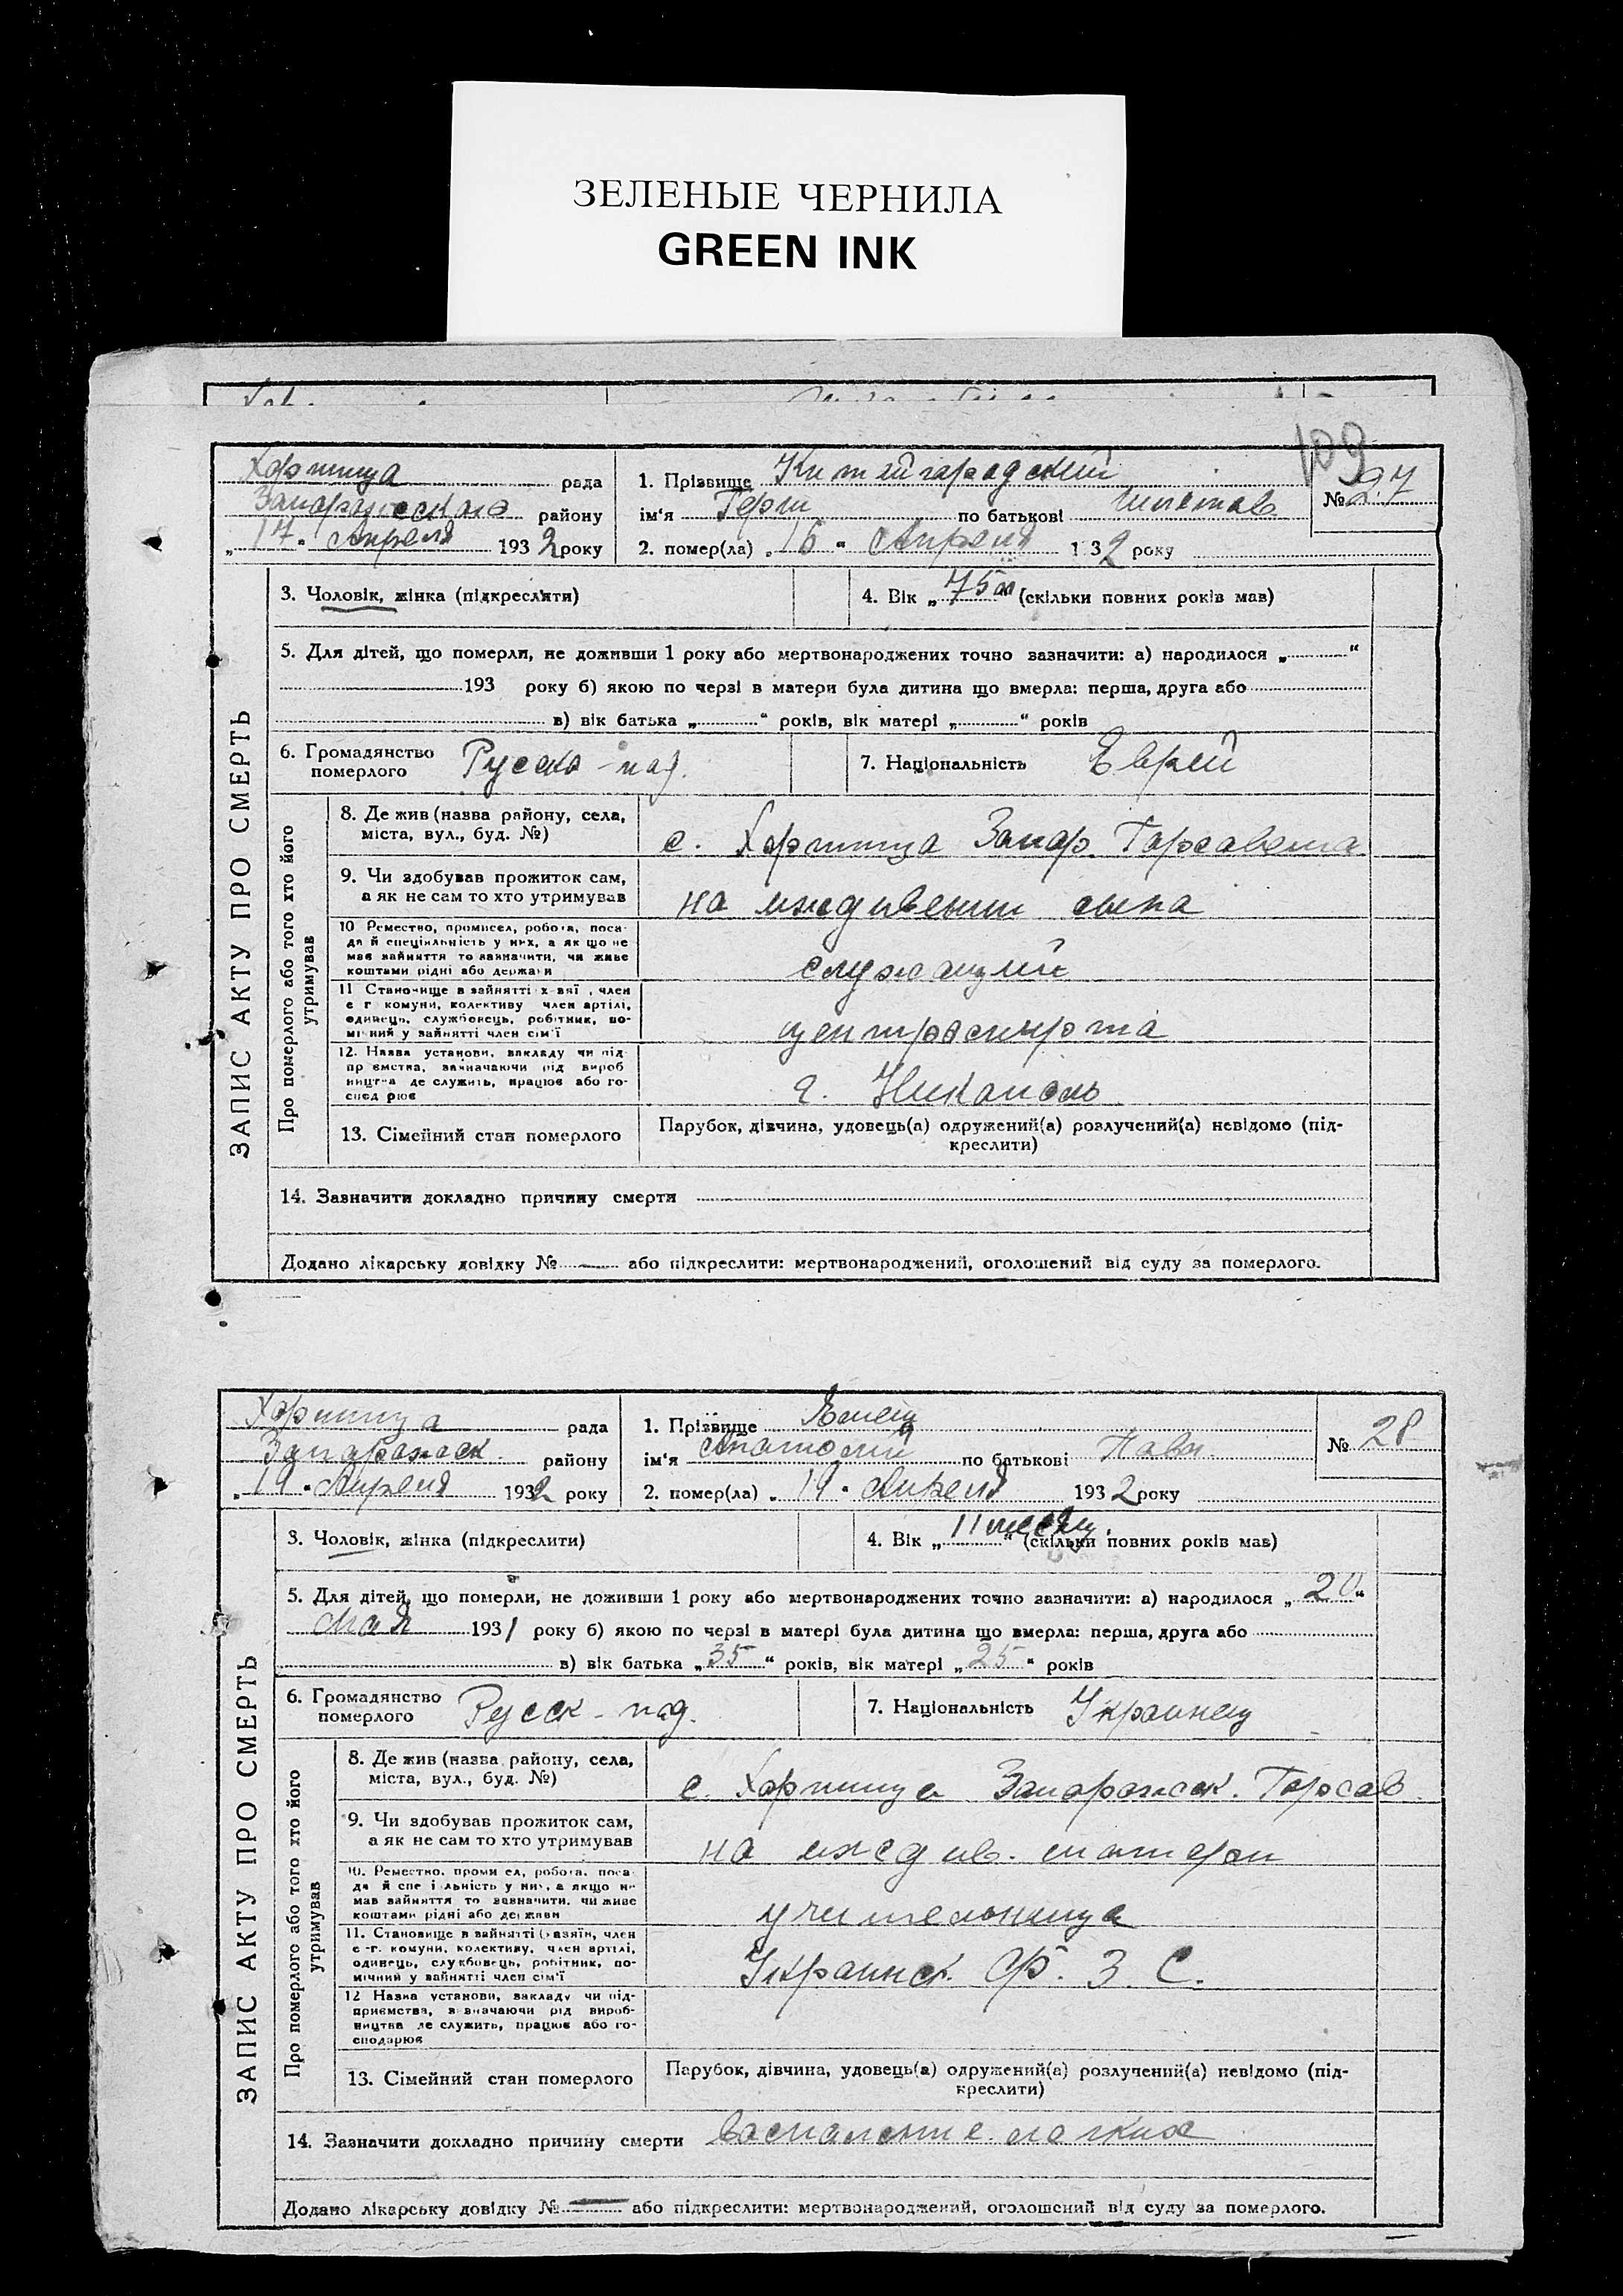 ЗЕЛЕНЫЕ ЧЕРНИЛА
GREEN INK
109
Хортица рада
Запорожского району
„17“ Апреля 1932 року
1. Прізвище Китайгородский
ім'я Герш по батькові
2. помер(ла) „16“ Апреля 1 32 року
№ 27
ЗАПИС АКТУ ПРО СМЕРТЬ
3. Чоловік, жінка (підкреслити)
4. Вік „75 “ (скільки повних років мав)
5. Для дітей, що померли, не доживши 1 року або мертвонароджених точно зазначити: а) народилося „ “
193 року б) якою по черзі в матери була дитина що вмерла: перша, друга або
в) вік батька „ “ років, вік матері „ “ років
6. Громадянство
померлого
Русско-под.
7. Національність Еврей
Про померлого або того хто його
утримував
8. Де жив (назва району, села,
міста, вул., буд. №)
с. Хортица Запор. Горсовета
9. Чи здобував прожиток сам,
а як не сам то хто утримував
на иждивении сына
10 Ремество, промисел, робота, поса-
да й спеціяльність у них, а як що не
мав зайняття то зазначити, чи живе
коштами рідні або держави
служащий
11 Становище в зайнятті х-заї , член
с г комуни, колективу член артілі,
одинець, службовець, робітник, по-
мічний у зайнятті член сім'ї
центроспирта
12. Назва установи, закладу чи під-
пр ємства, зазначаючи рід вироб
ництва де служить, працює або го-
спод рює
г. Никополь
13. Сімейний стан померлого
Парубок, дівчина, удовець(а) одружений(а) розлучений(а) невідомо (під-
креслити)
14. Зазначити докладно причину смерти
Додано лікарську довідку № — або підкреслити: мертвонароджений, оголошений від суду за померлого.
Хортица рада
Запорожск. району
„19“ Апреля 1932 року
1. Прізвище
ім'я Анатолий по батькові Павл.
2. помер(ла) „19“ Апреля 1932 року
№ 28
ЗАПИС АКТУ ПРО СМЕРТЬ
3. Чоловік, жінка (підкреслити)
4. Вік „11 месяц.“ (скільки повних років мав)
5. Для дітей, що померли, не доживши 1 року або мертвонароджених точно зазначити: а) народилося „20“
Мая 1931 року б) якою по черзі в матері була дитина що вмерла: перша, друга або
в) вік батька „35“ років, вік матері „25“ років
6. Громадянство
померлого
Русск-под.
7. Національність Украинец
Про померлого або того хто його
утримував
8. Де жив (назва району, села,
міста, вул., буд. №)
с. Хортица Запорожск. Горсов.
9. Чи здобував прожиток сам,
а як не сам то хто утримував
на иждив. матери
10. Ремество, проми ел, робота, поса-
да й спе і льність у них, а якщо не
мав зайняття то зазначити, чи живе
коштами рідні або держави
учительница
11. Становище в зайнятті (хазяїн, член
с-г. комуни, колективу, член артілі,
одинець, службовець, робітник, по-
мічний у зайнятті член сім'ї
Украинск. Ф. З. С.
12 Назва установи, закладу чи під-
приємства, зазначаючи рід вироб-
ництва де служить, працює або го-
сподарює
13. Сімейний стан померлого
Парубок, дівчина, удовець(а) одружений(а) розлучений(а) невідомо (під-
креслити)
14. Зазначити докладно причину смерти Воспаление легких
Додано лікарську довідку № — або підкреслити: мертвонароджений, оголошений від суду за померлого.